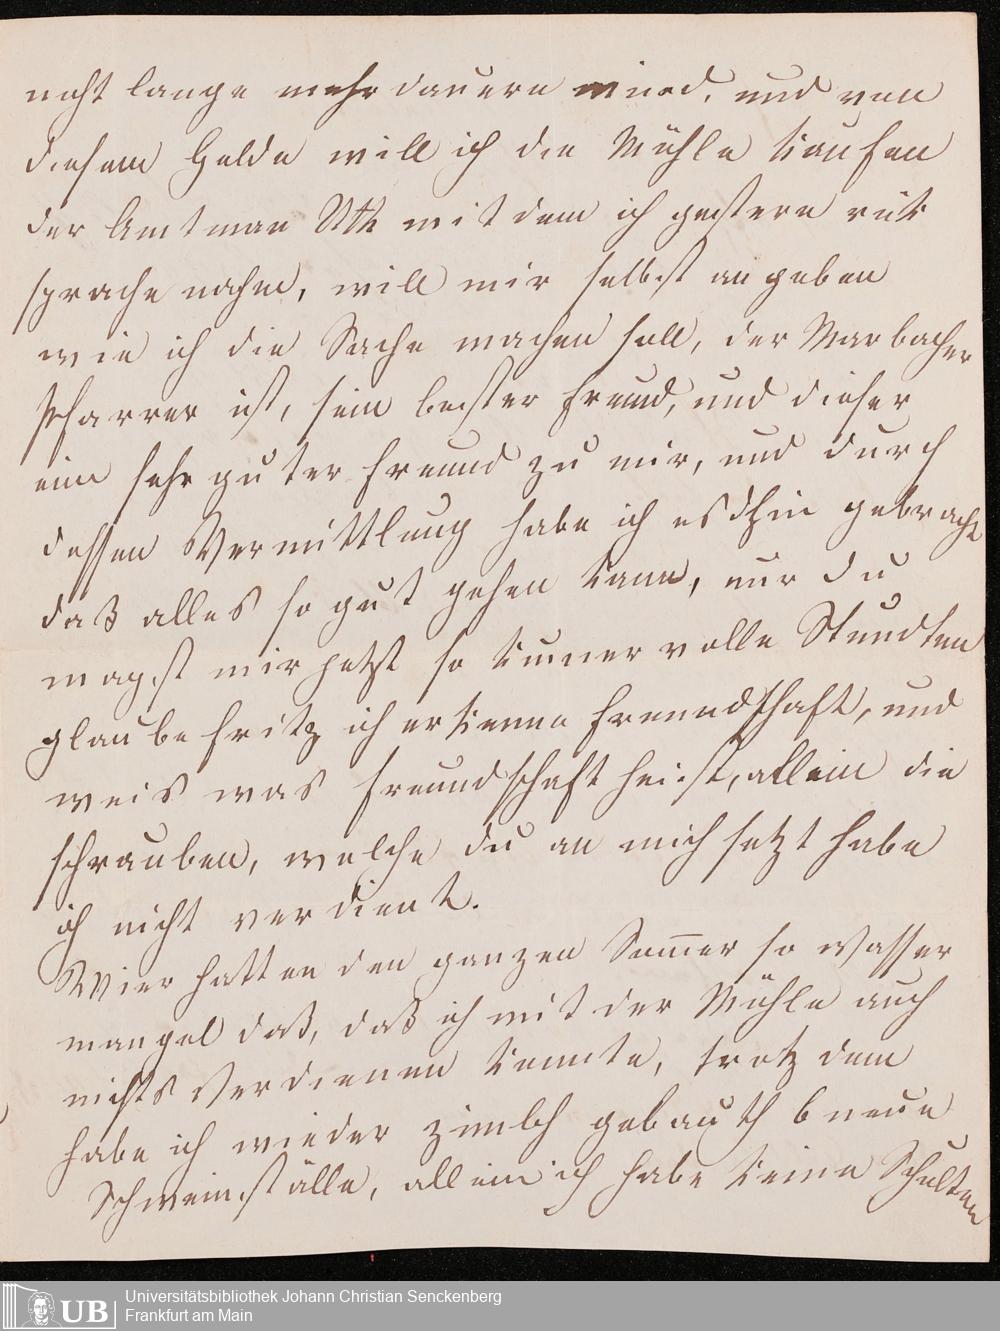 nicht lange mehr dauern wird, und von
diesem Gelde will ich die Mühle kaufen
der Amtman Uth mit dem ich gestern rük
sprache nahm, will mir selbst an geben
wie ich die Sache machen soll, der Marbacher
Pfarrer ist, sein bester Freund, und dieser
ein sehr guter Freund zu mir, und durch
dessen Vermittlung habe ich es dhin gebracht
daß alles so gut gehen kann, nur du
magst mir jetzt so kumervolle Stundten
glaube Fritz ich erkenne Freundschaft, und
weis was Freundschaft heist, allein die
schrauben, welche du an mich setzt habe
ich nicht verdient.
Wier hatten den ganzen Som̅er so wasser
mangel daß, daß ich mit der Mühle auch
nichts Verdienen konnte, trotz dem
habe ich wieder zimlch gebauth 6 neue
Schweinställe, allein ich habe keine Schulten
Universitätsbibliothek Johann Christian Senckenberg
UB Frankfurt am Main